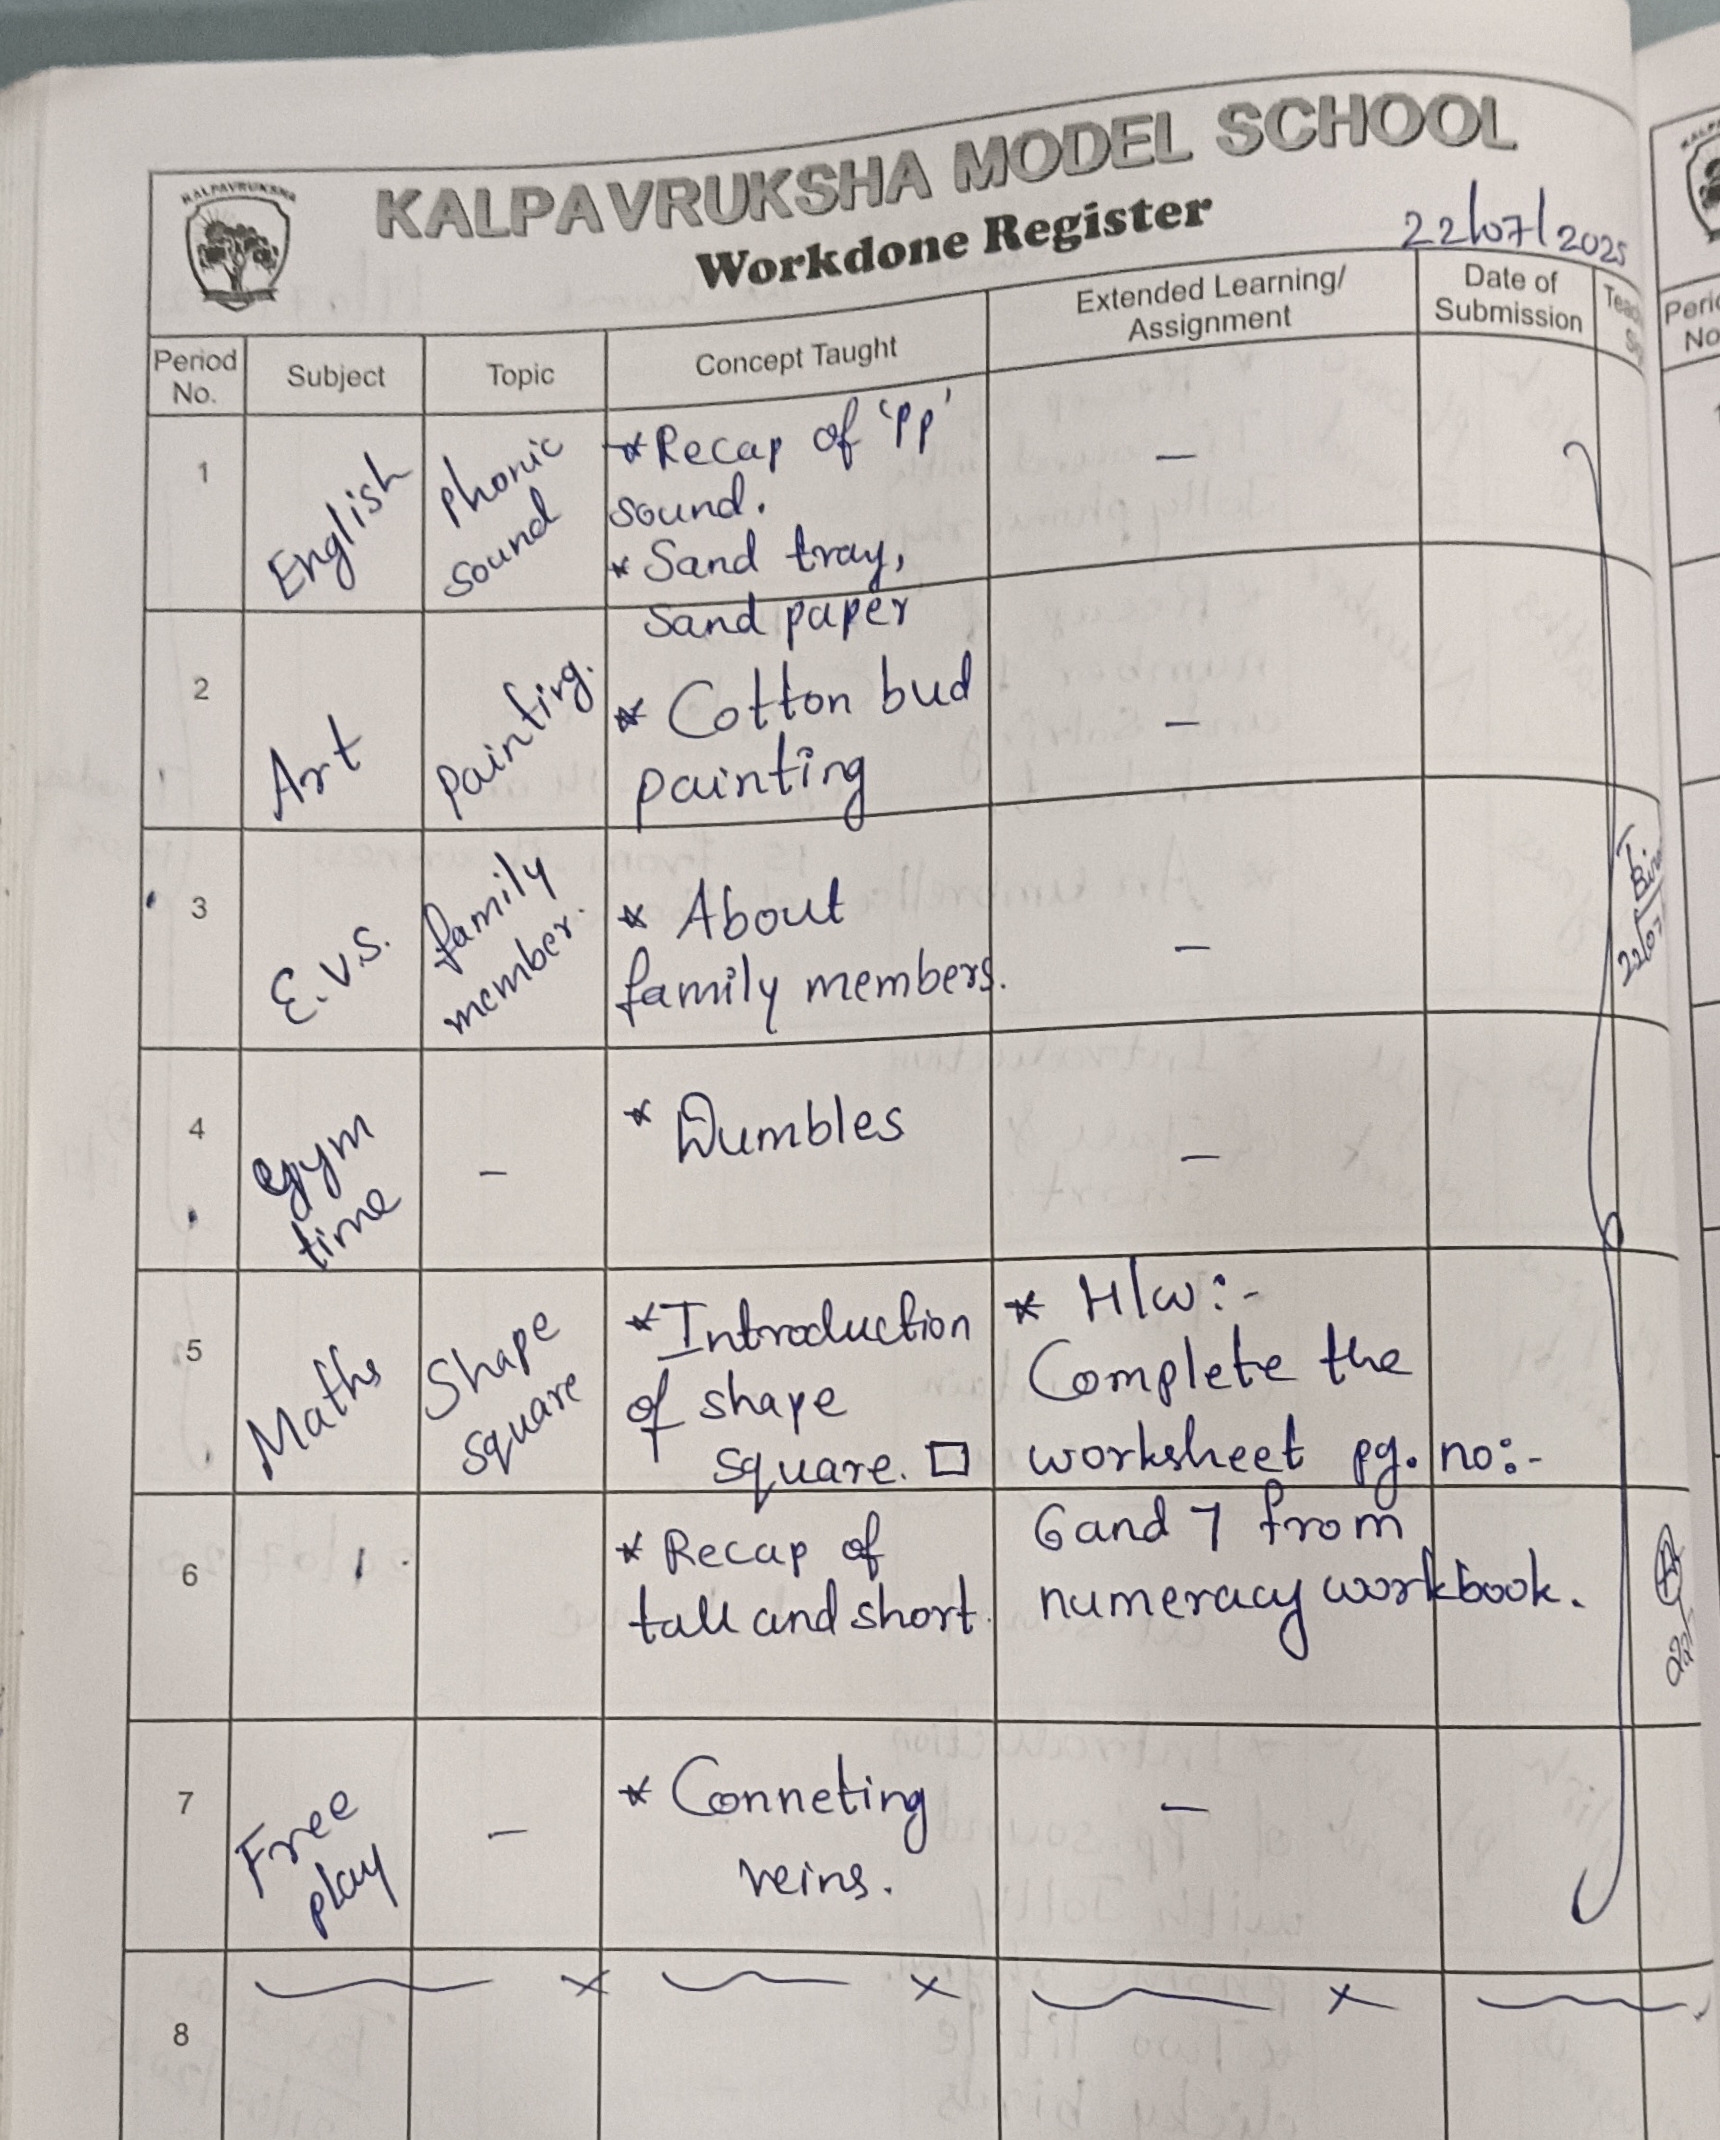 KALPAVRUKSHA
KALPAVRUKSHA MODEL SCHOOL
Workdone Register
22/07/2025
Period No.
Subject
Topic
Concept Taught
Extended Learning/
Assignment
Date of
Submission
1
English
phonic
sound
* Recap of 'Pp'
sound.
* Sand tray,
Sand paper
-
2
Art
painting.
* Cotton bud
painting
-
3
E.V.S.
family
member.
* About
family members.
-
4
Gym
time
-
* Dumbles
-
5
Maths
Shape
square
* Introduction
of shape
square. □
* H/W:-
Complete the
worksheet pg. no:-
6 and 7 from
numeracy workbook.
6
* Recap of
tall and short.
7
Free
play
-
* Conneting
reins.
-
8
Period
No